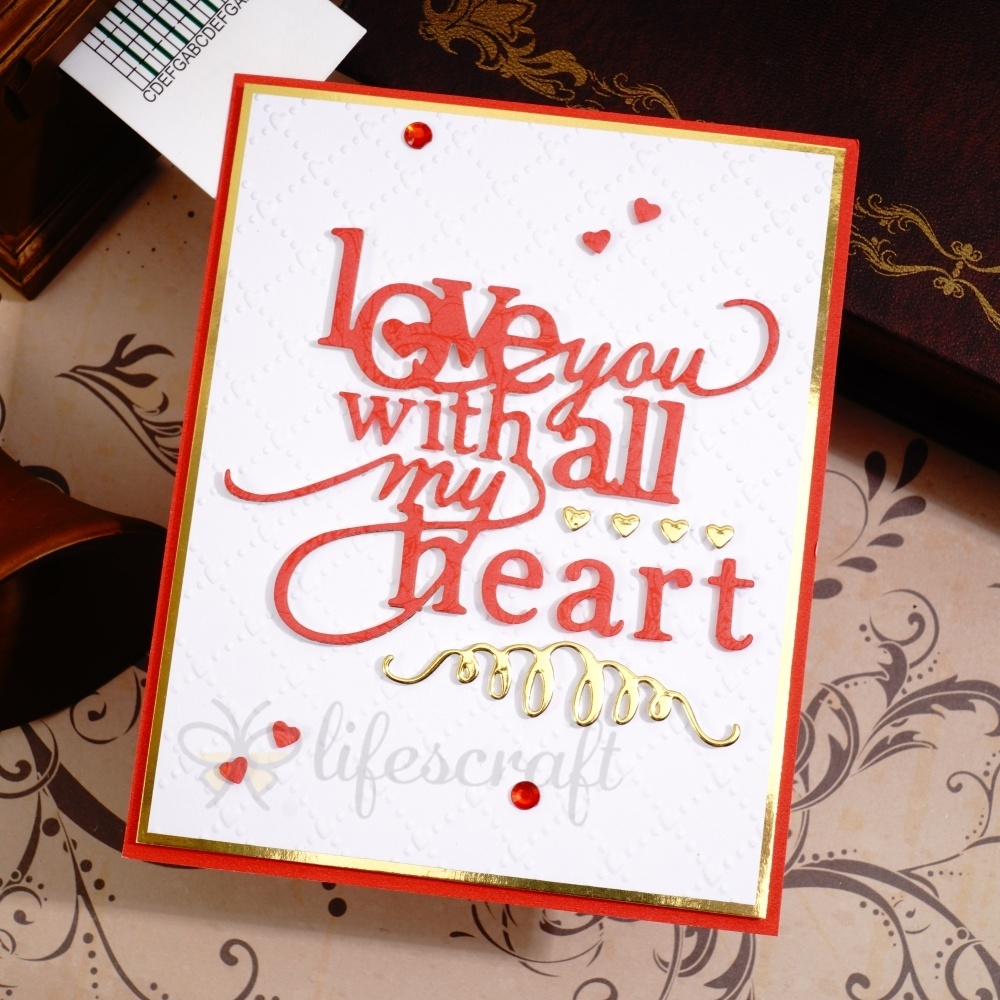 CDEFGABCDEFGA
love you
with all
my
heart
lifescraft